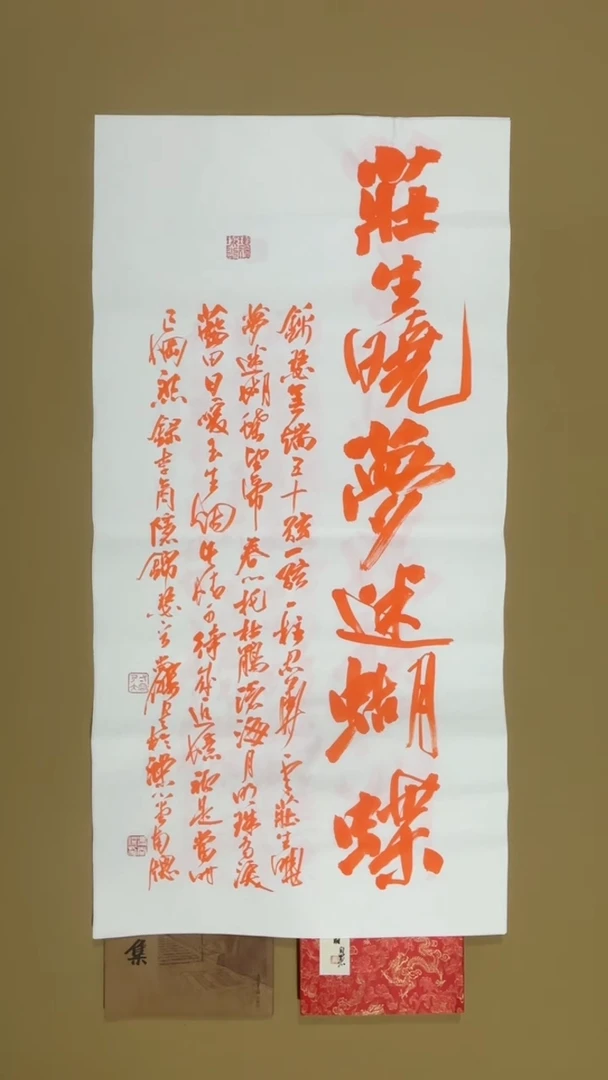 莊生曉夢迷蝴蝶
錦瑟無端五十弦一弦一柱思華年莊生曉
夢迷蝴蝶望帝春心托杜鵑滄海月明珠有淚
藍田日暖玉生煙此情可待成追憶祇是當時
已惘然錄李商隱錦瑟
集